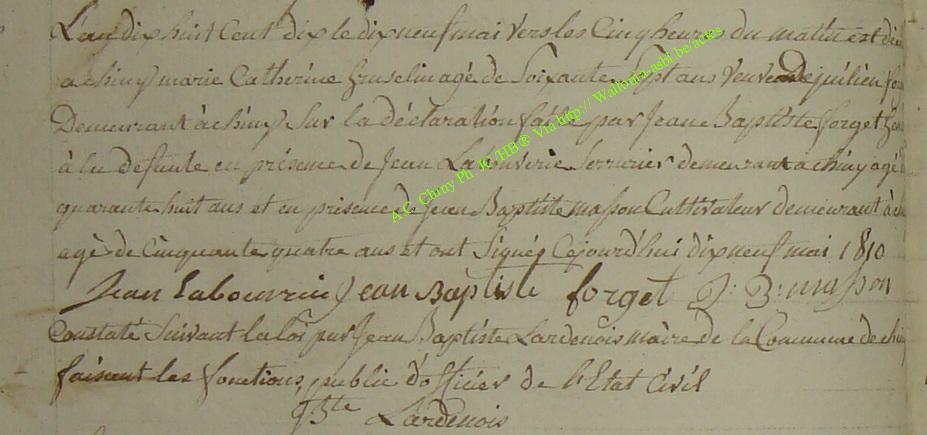 L'an dix huit Cent dix le dix neuf mai vers les Cinq heures du matin est
a chiny marie Catherine agé de Soixante Sept ans veuve de julien
Demeurant à chiny Sur la déclaration faite par Jean Baptiste forget
à la defunte en présence de Jean Labouverie Serrurier demeurant a chiny agé
quarante huit ans et en présence de Jean Baptiste masson Cultivateur demeurant à
agé de Cinquante quatre ans et ont Signés Cejourd'hui dix neuf mai 1810
Jean Labouverie Jean Baptiste forget J: B: masson
Constaté Suivant la loi par Jean Baptiste Lardenois maire de la Commune de
faisant les fonctions public d'officier de l'Etat Civil
Lardenois
A.C. Chiny Ph JC HB® Via http:// Wallonia-asbl.be/actes